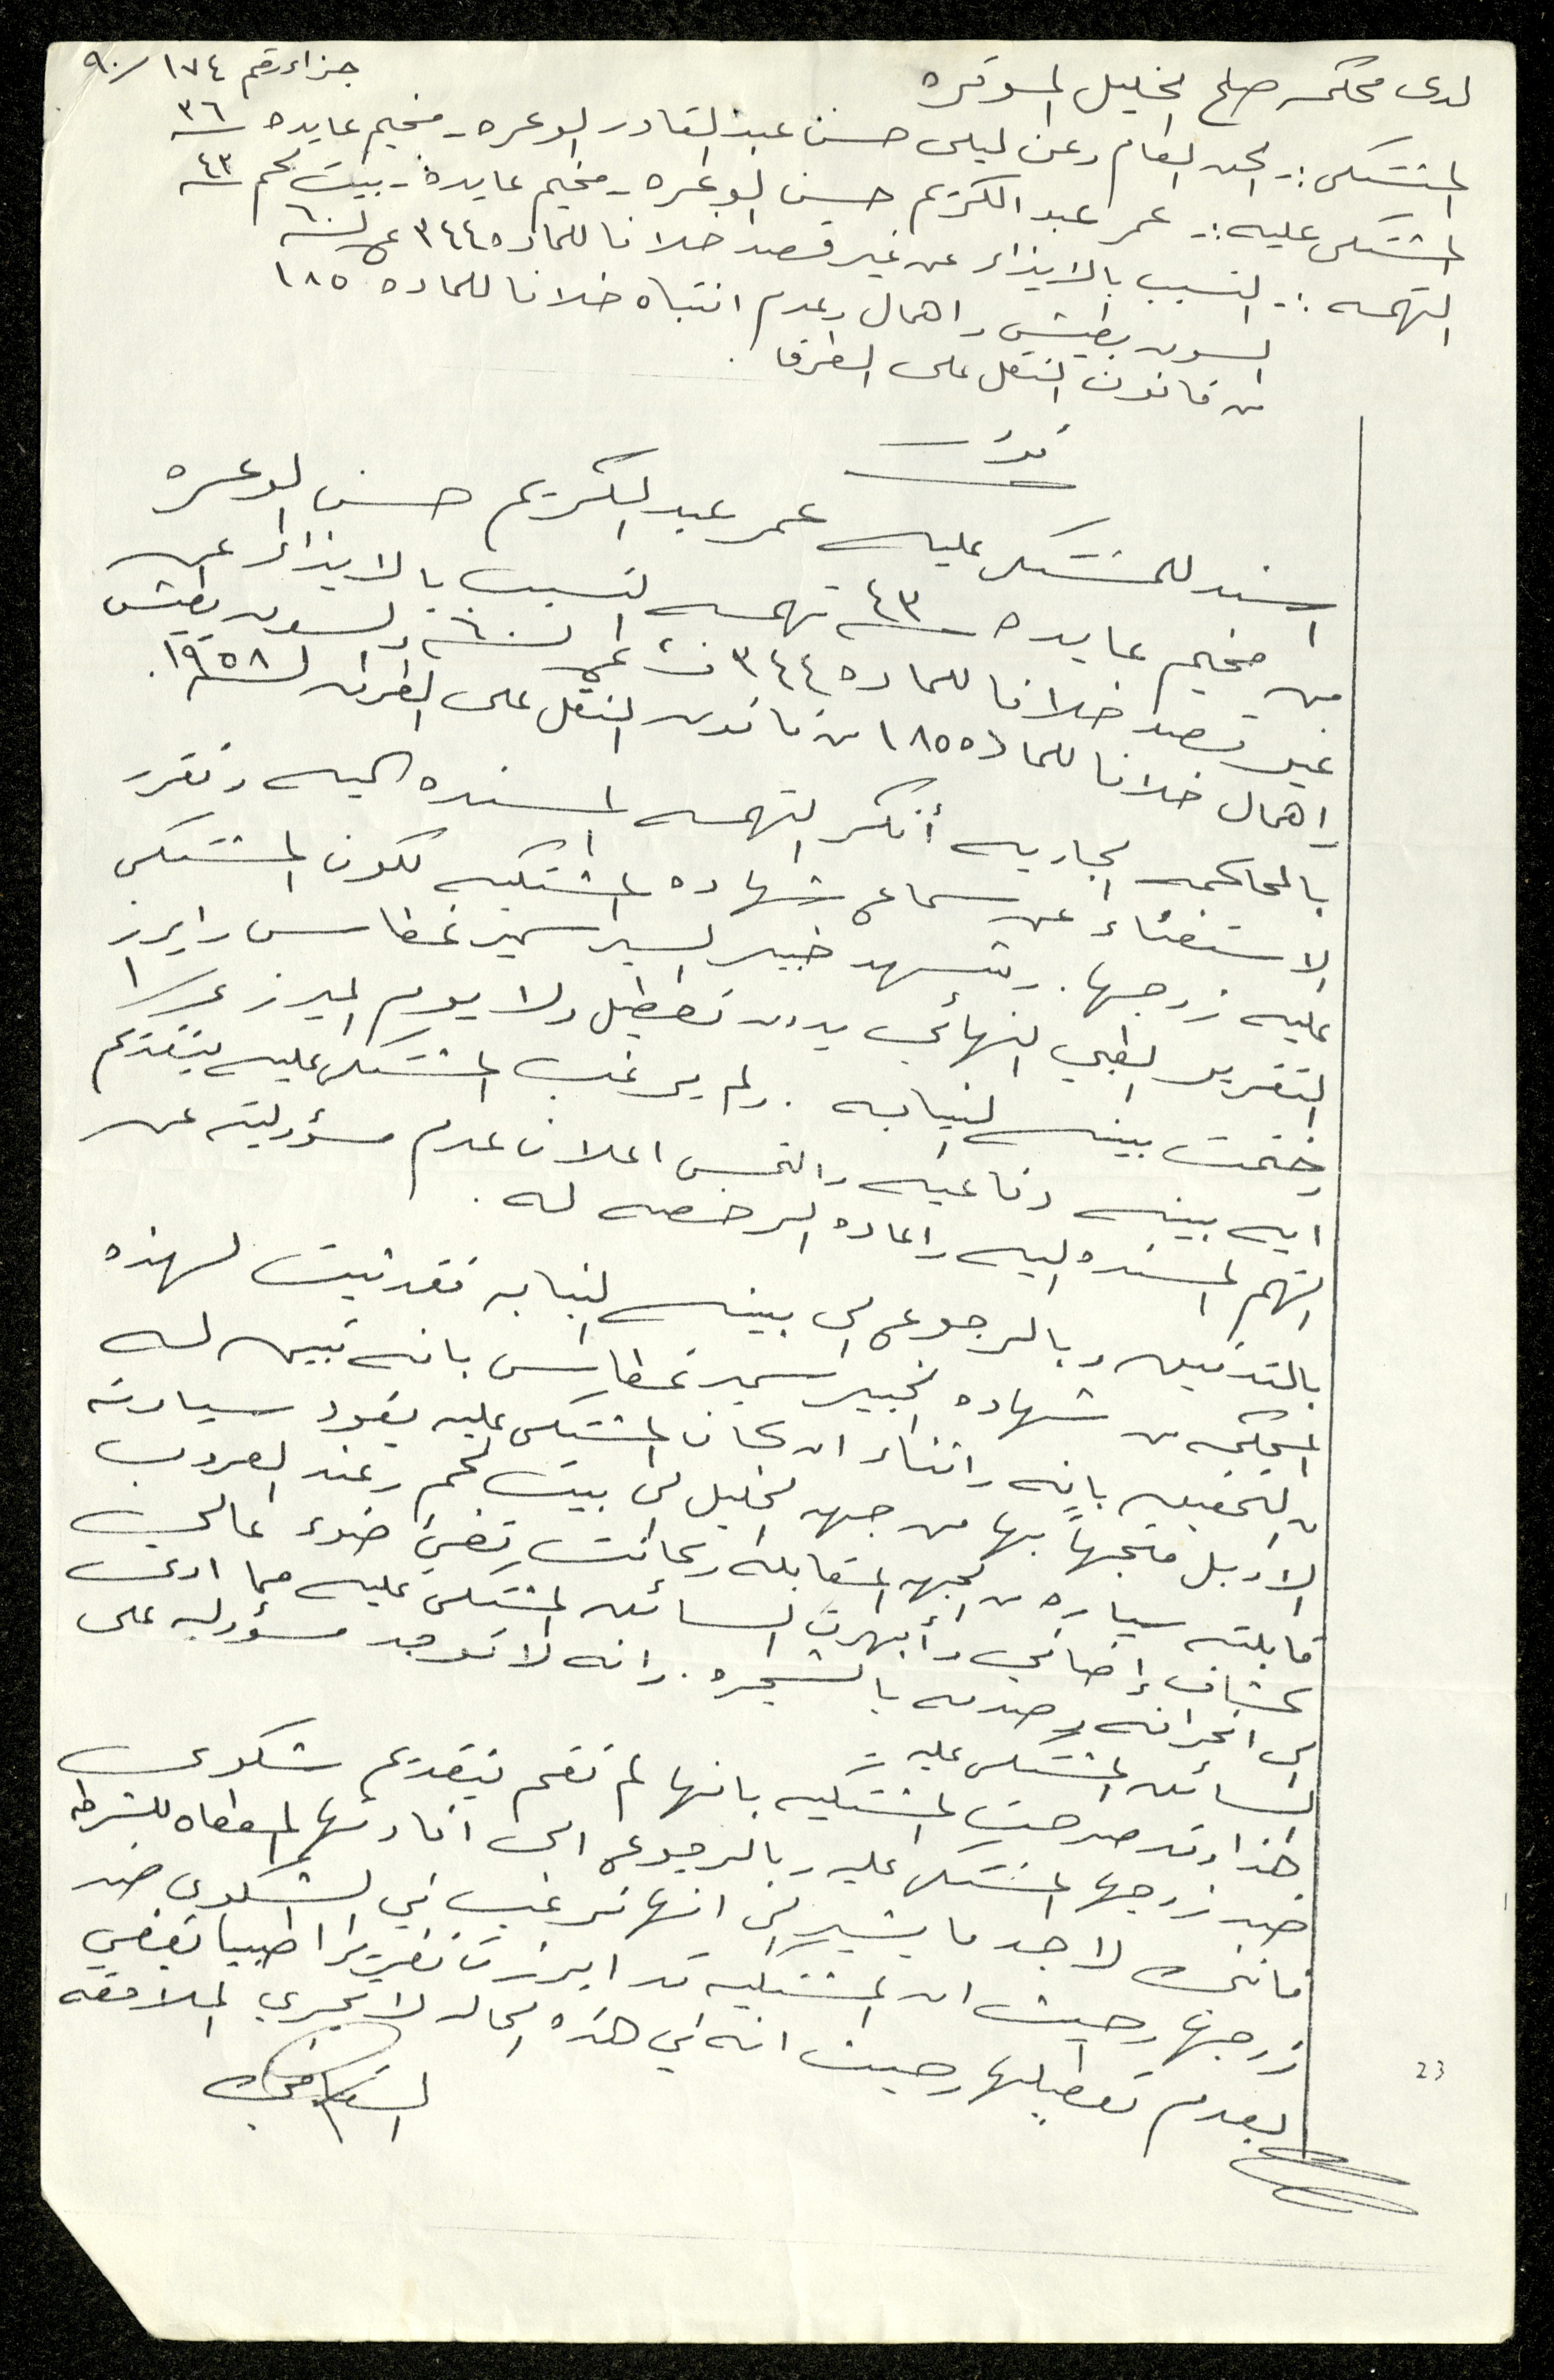 جزاء رقم ١٧٤/٩٠
لدى محكمه صلح الخليل الموقره
المشتكى :- الحق العام وعن ليلى حسن عبد القادر ابو عره - مخيم عايده ٣٦ سنه
المشتكى عليه :- عمر عبد الكريم حسن ابو عره - مخيم عايده - بيت لحم ٤٣ سنه
التهمه :- التسبب بالايذاء عن غير قصد خلافا للماده ٣٤٤ ع لسنه ٦٠
السوق بطيش واهمال وعدم انتباه خلافا للماده ١٨٥
من قانون النقل على الطرق .
قرار
اسند للمشتكى عليه عمر عبد الكريم حسن ابو عره
من مخيم عايده ٤٣ سنه تهمه التسبب بالايذاء عن
غير قصد خلافا للماده ٣٤٤ ق ع لسنه ٦٠ والسوق بطيش
واهمال خلافا للماده ١٨٥ من قانون النقل على الطرق لسنه ١٩٥٨.
بالمحاكمه الجاريه أنكر التهمه المسنده اليه وتقرر
الاستغناء عن سماع شهاده المشتكيه لكون المشتكى
عليه زوجها . وشهد خبير السير سمير غطاس وابرز
التقرير الطبي النهائي بدون تعطيل ولا يوم المبرز ع/١
وختمت بينه النيابه . ولم يرغب المشتكى عليه بتقديم
ايه بينه دفاعيه والتمس اعلان عدم مسؤوليته عن
التهم المسنده اليه واعاده الرخصه له .
بالتدقيق وبالرجوع الى بينه النيابه فقد ثبت لهذه
المحكمه من شهاده الخبير سمير غطاس بانه تبين له
من التحقيق بانه واثناء ان كان المشتكى عليه يقود سيارته
الاوبل متجهاً بها من جهه الخليل الى بيت لحم وعند العروب
قابلته سياره من الجهه المقابله وكانت تضيئ ضوء عالي
كشاف إضافي وأبهرت السائق المشتكى عليه مما ادى
الى انحرافه وصدمه بالشجره . وانه لا توجد مسؤوليه على
السائق المشتكى عليه
هذا وقد صرحت المشتكيه بانها لم تقم بتقديم شكوى
ضد زوجها المشتكى عليه وبالرجوع الى افادتها المعطاه للشرطه
فانني لا اجد ما يشير الى انها ترغب في الشكوى ضد
زوجها وحيث ان المشتكيه قد ابرزت تقريرا طبيا يقضي
بعدم تعطيلها وحيث انه في هذه الحاله لا تجري الملاحقه
23